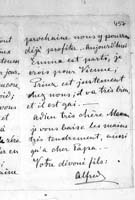 454
prochaine nous y pourrons
déjà profiter. Aujourd'hui
Emma est partie, je
crois pour Vienne,
Prinz est justement
chez nous; il va très bien,
et il est gai.—
Adieu très chère Mama
je vous baise les mains
très tendrement, ainsi
qu'à cher Papa.—
Votre dévoué fils:
Alfred